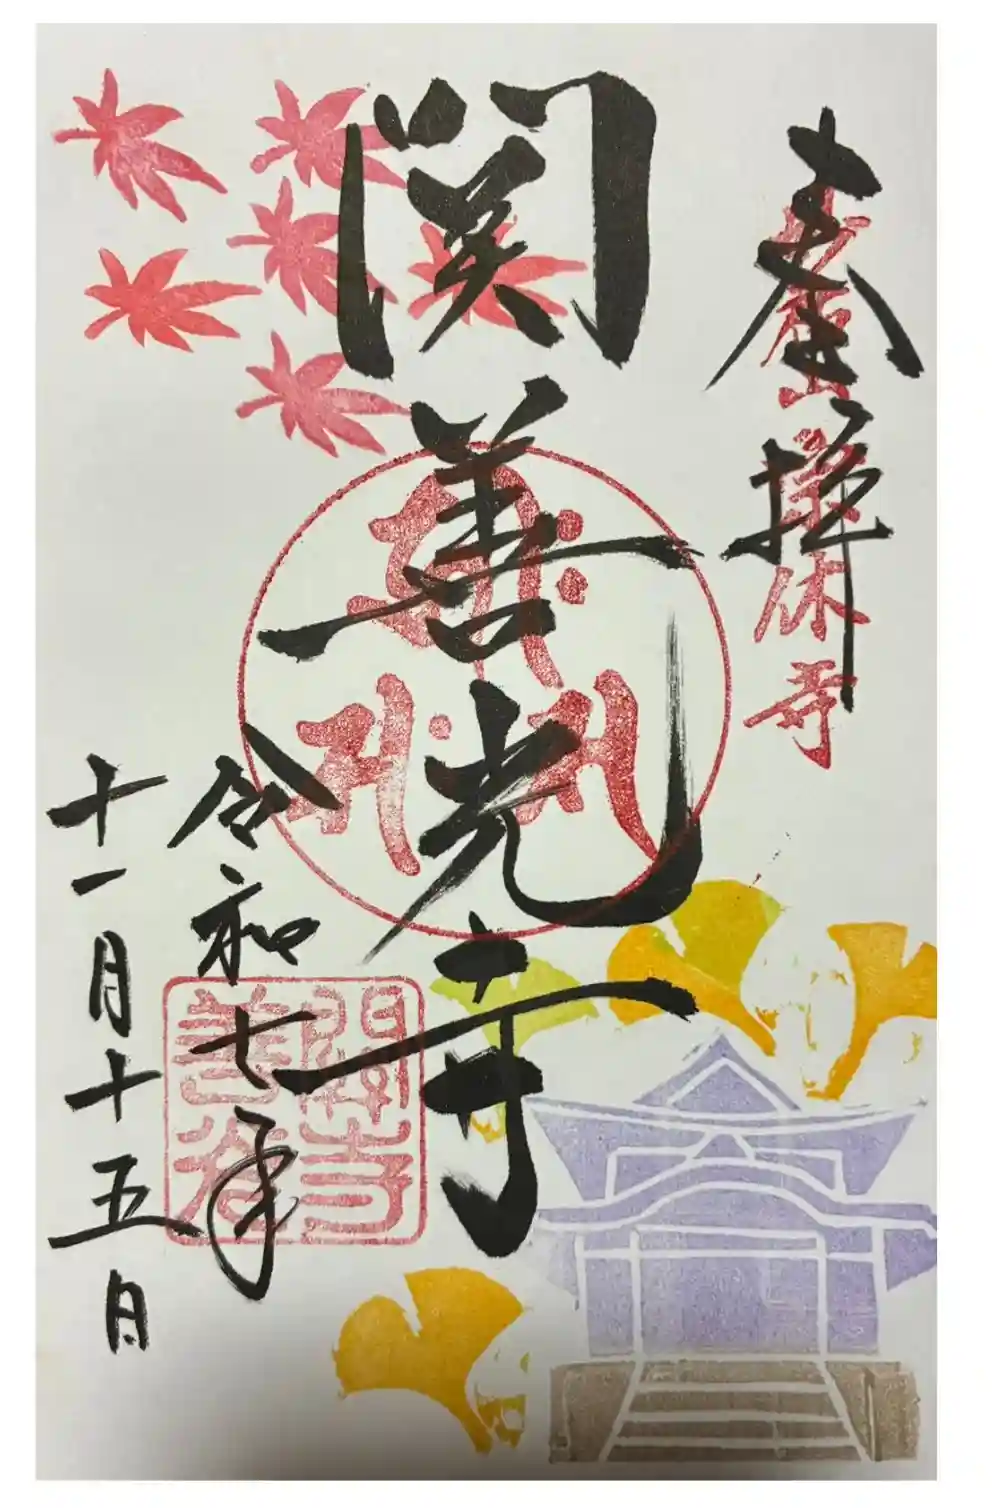 奉拝
妙祐山 宗休寺
関善光寺
令和七年
十一月十五日